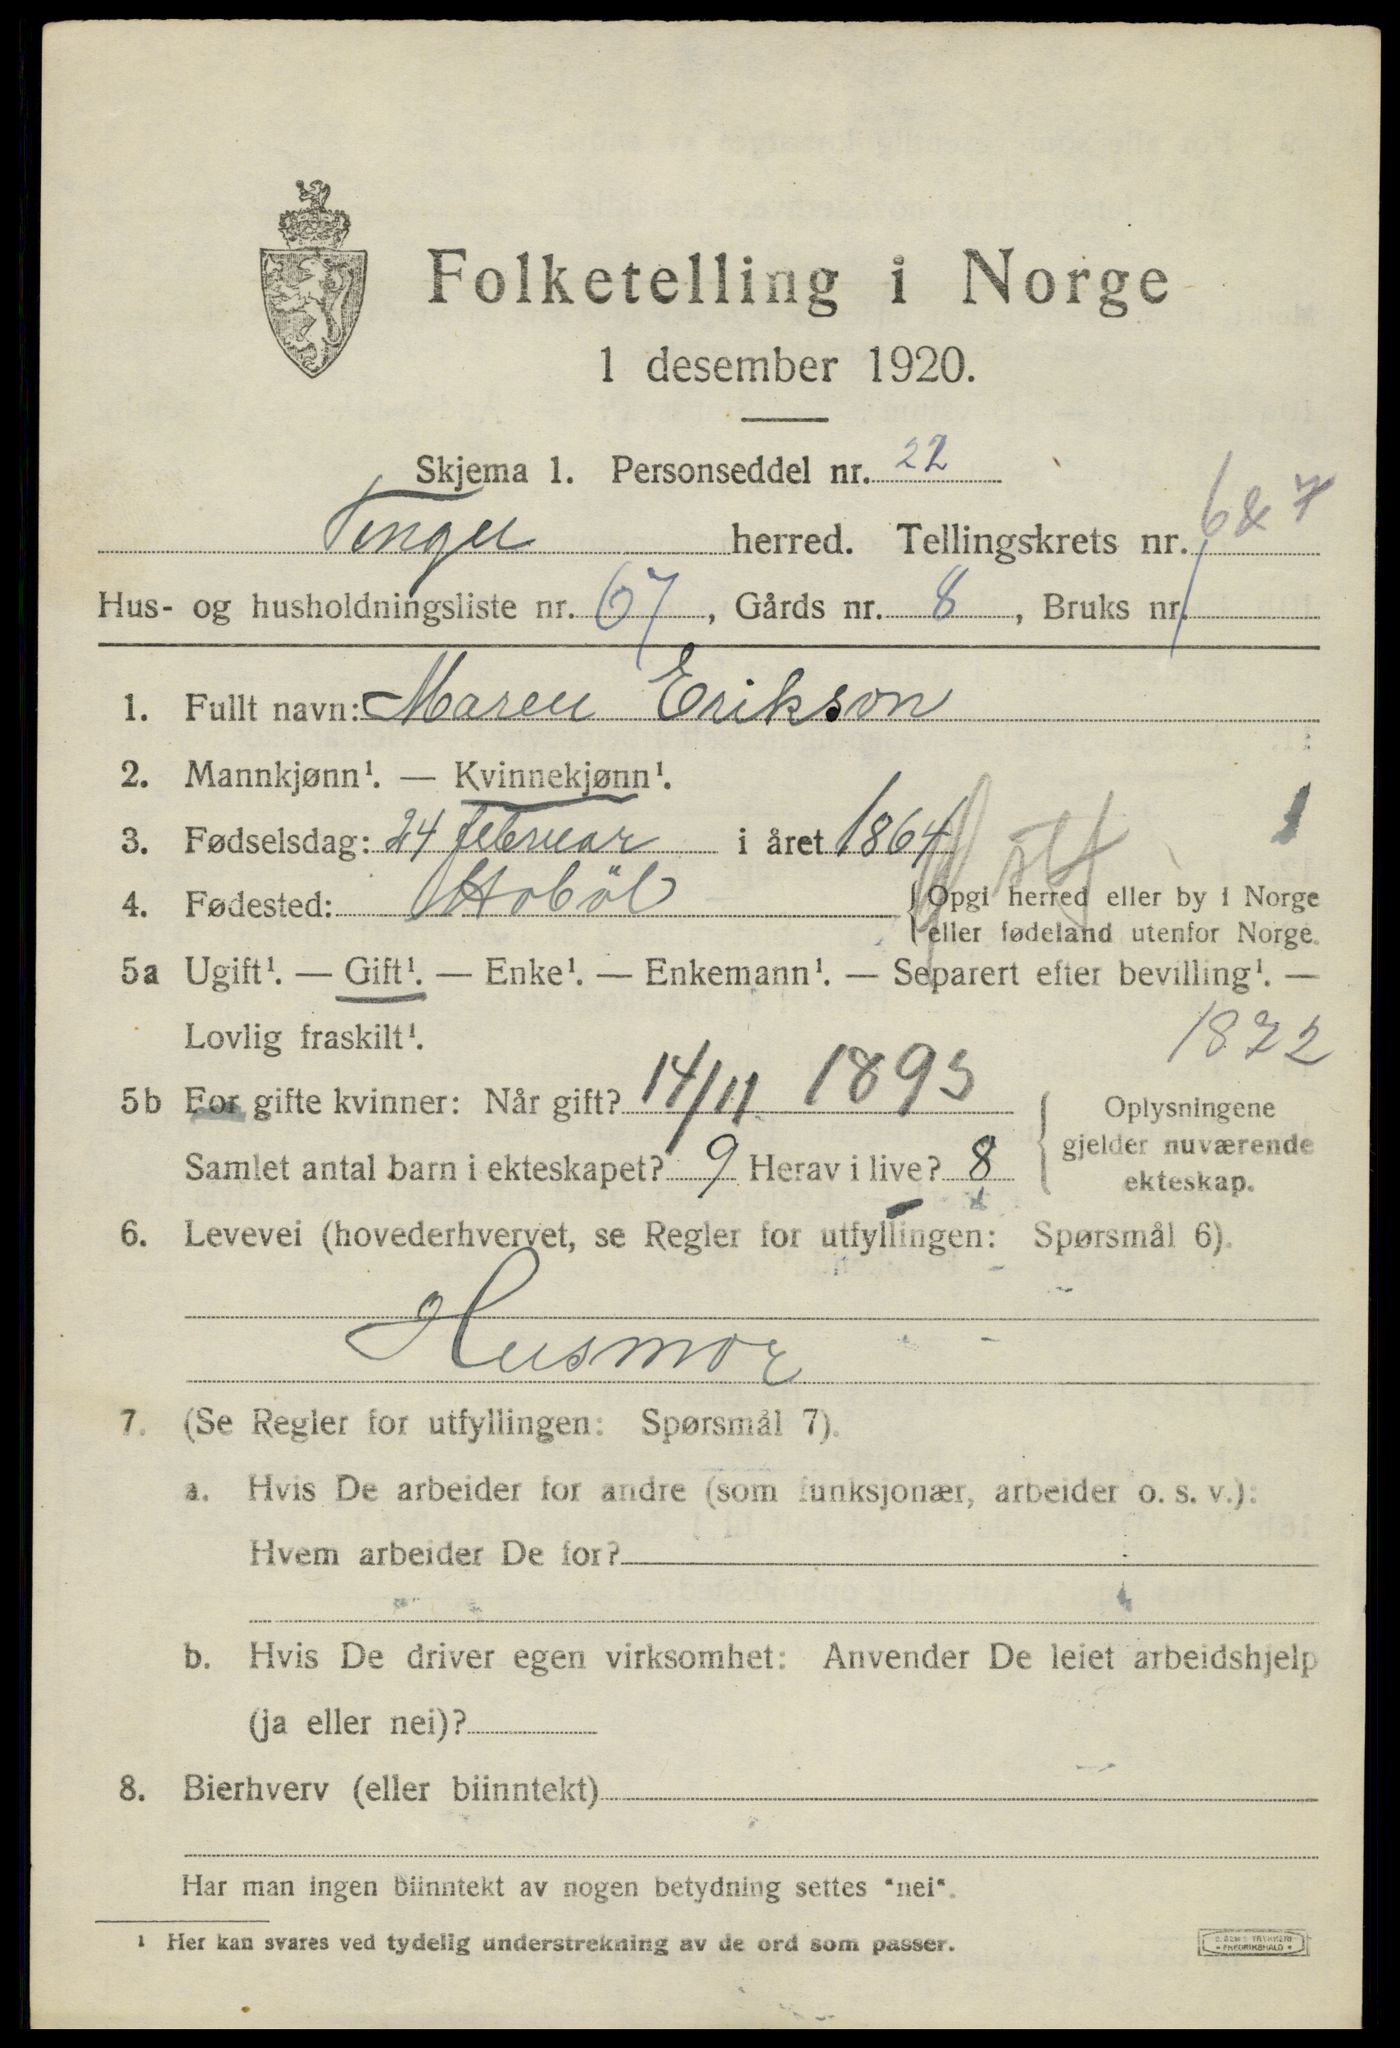 Folketelling i Norge
1 desember 1920.
Skjema 1. Personseddel nr. 22
herred. Tellingskrets nr. 6 & 7
Hus- og husholdningsliste nr. 67, Gårds nr. 8, Bruks nr.
1. Fullt navn: Maren Erikson
2. Mannkjønn¹. — Kvinnekjønn¹.
3. Fødselsdag: 24 februar i året 1864
4. Fødested: Hoböl {Opgi herred eller by i Norge
eller fødeland utenfor Norge.
5a Ugift¹. — Gift¹. — Enke¹. — Enkemann¹. — Separert efter bevilling¹. —
Lovlig fraskilt¹.
1872
5b For gifte kvinner: Når gift? 14/11 1893
Samlet antal barn i ekteskapet? 9 Herav i live? 8
Oplysningene
gjelder nuværende
ekteskap.
6. Levevei (hovederhvervet, se Regler for utfyllingen: Spørsmål 6).
Husmor
7. (Se Regler for utfyllingen: Spørsmål 7).
a. Hvis De arbeider for andre (som funksjonær, arbeider o. s. v.):
Hvem arbeider De for?
b. Hvis De driver egen virksomhet: Anvender De leiet arbeidshjelp
(ja eller nei)?
8. Bierhverv (eller biinntekt)
Har man ingen biinntekt av nogen betydning settes "nei".
¹ Her kan svares ved tydelig understrekning av de ord som passer.